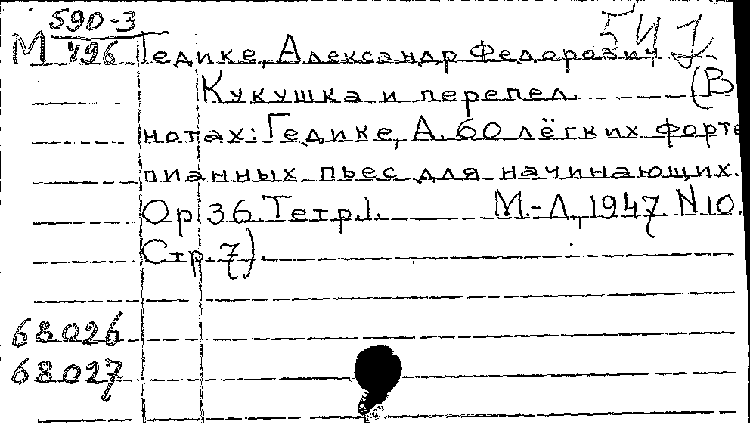 590-3
М 496 Гедике, Александр Федорович
Кукушка и перепел. (В
нотах: Гедике, А. 60 лёгких форте
пианных пьес для начинающих.
Op. 36. Тетр. 1. М.-Л., 1947. N 10.
Стр. 7).
68026
68027